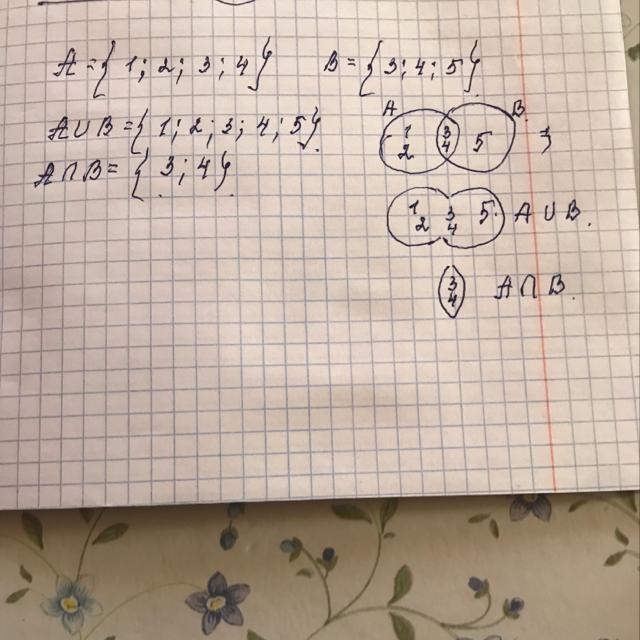 A = { 1; 2; 3; 4 } B = { 3; 4; 5 }
A ∪ B = { 1; 2; 3; 4; 5 }
A ∩ B = { 3; 4 }
A B
1 3 5
2 4
1 3 5 A ∪ B.
2 4
3 A ∩ B.
4